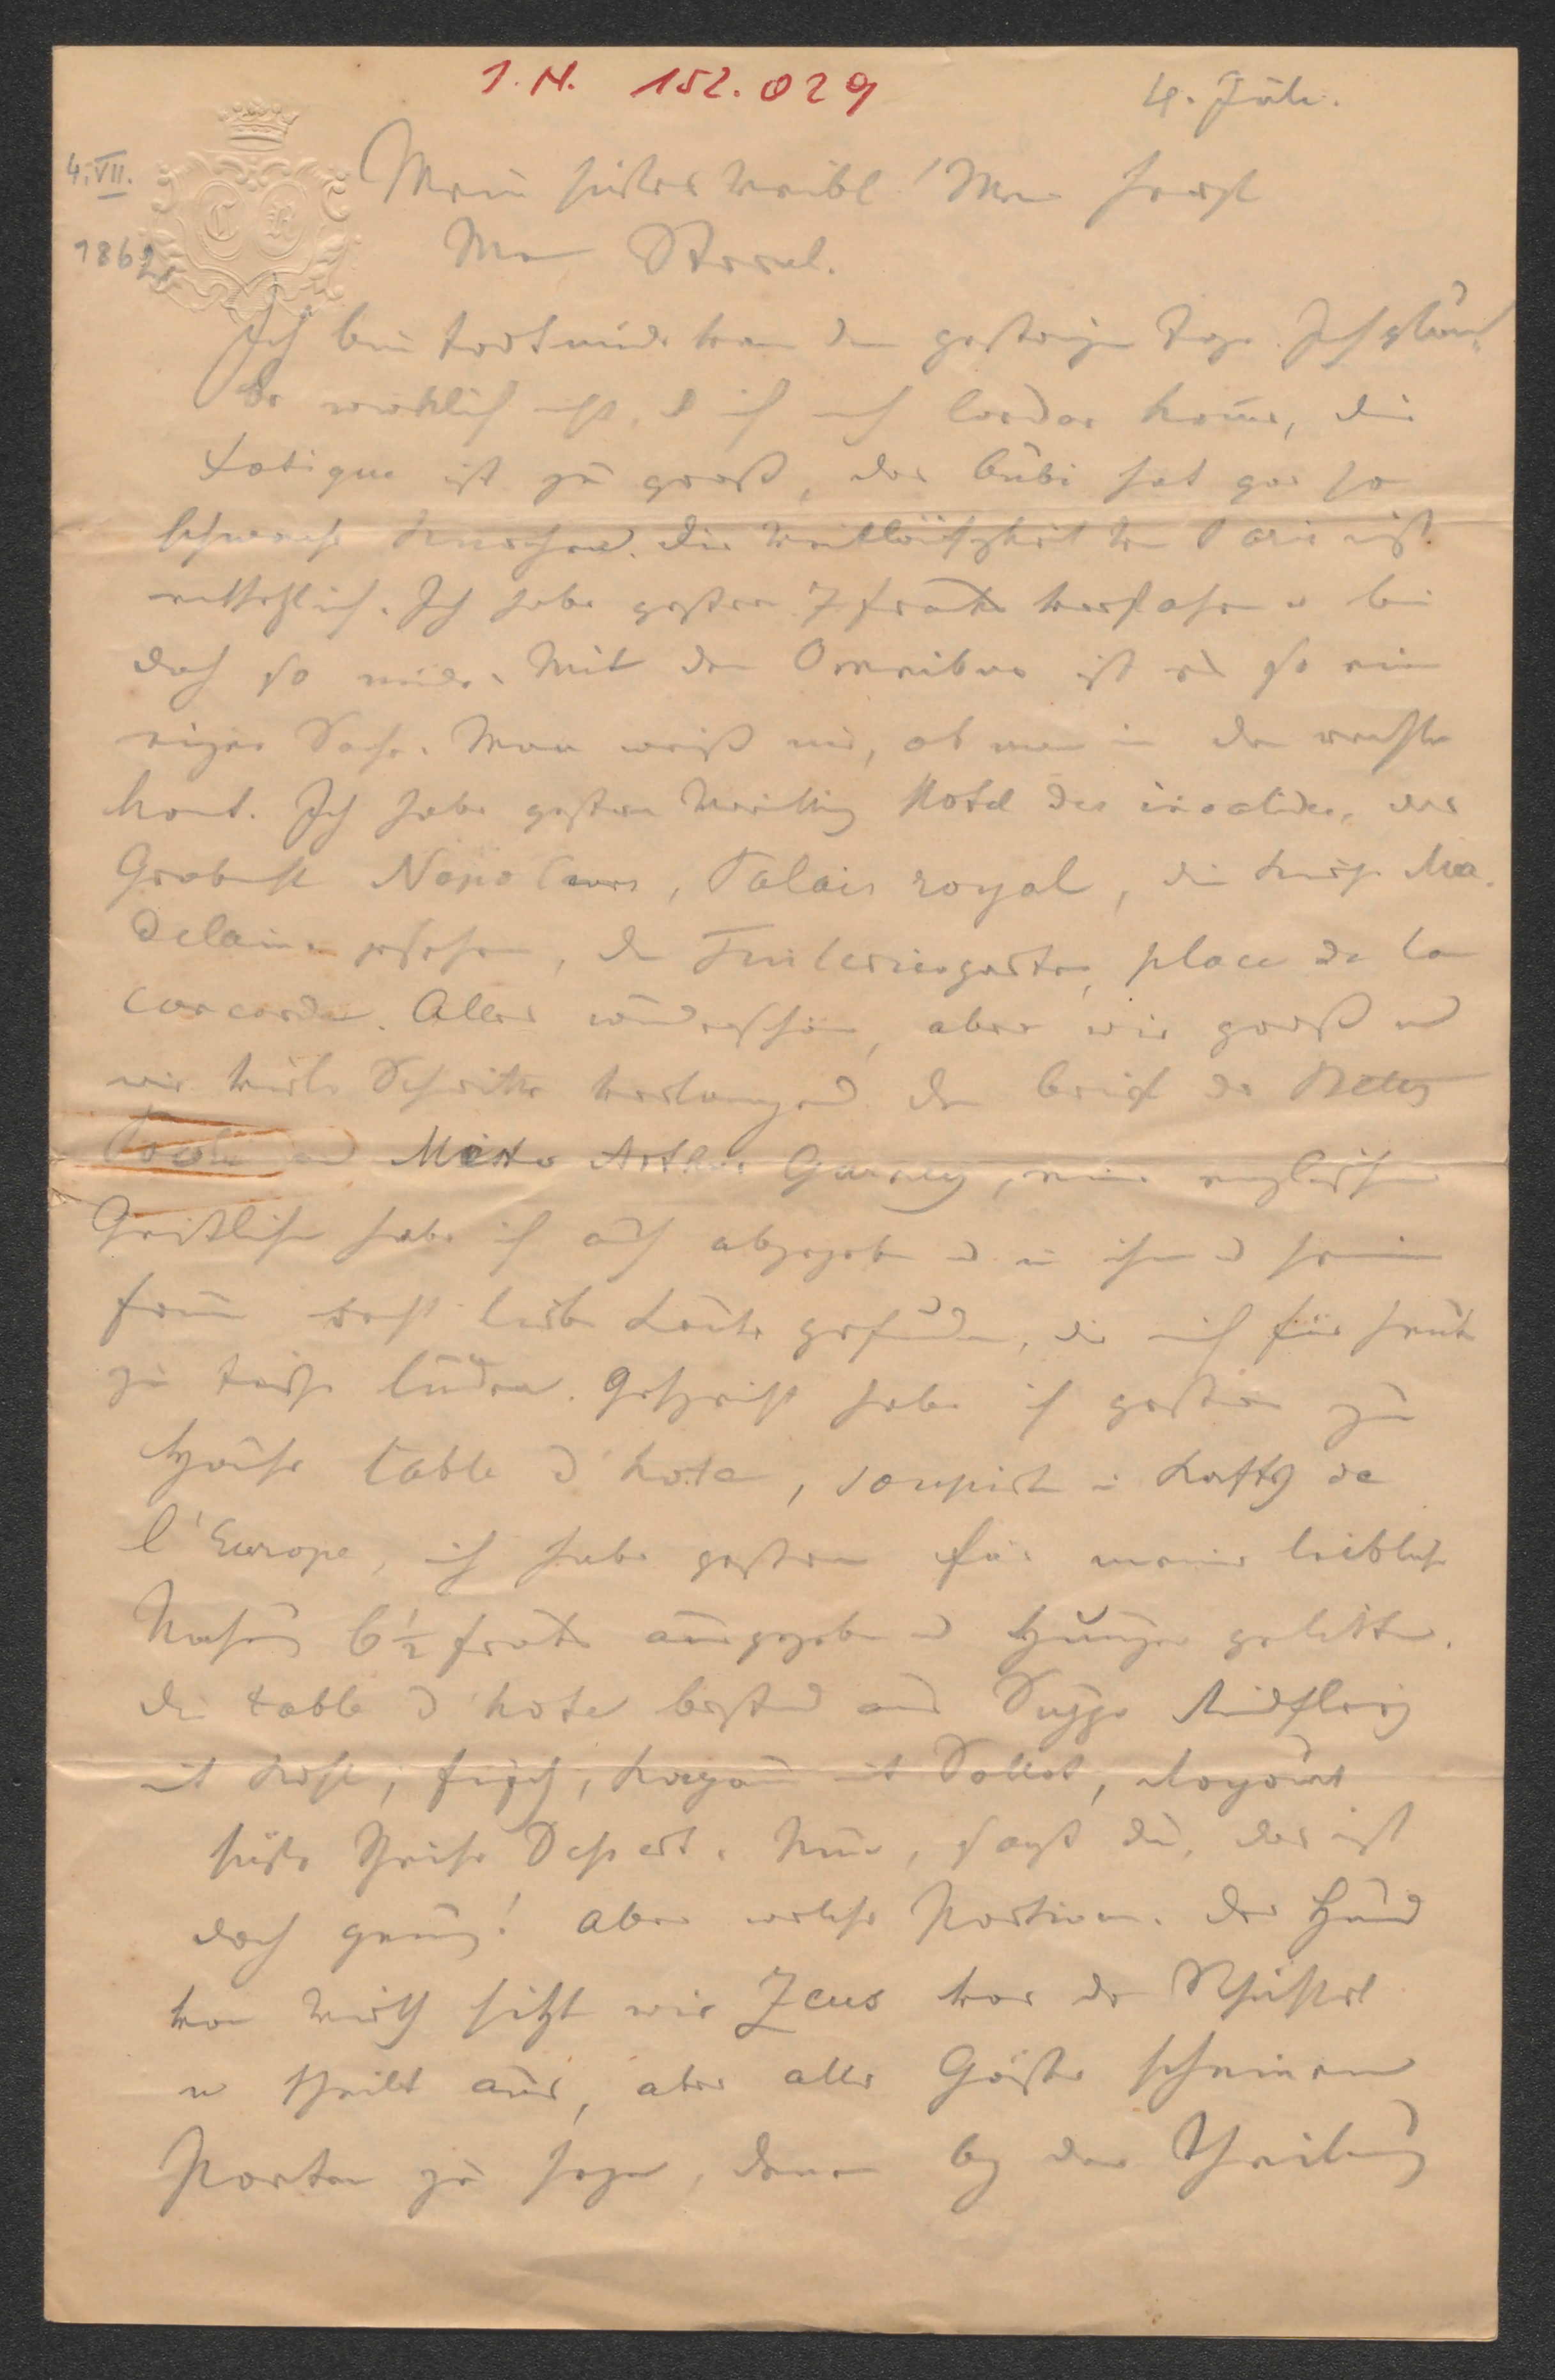 I. N. 152.029
4. Juli.
4. VII.
1862
C R
Mein süßes Weibl! Mein Herzl
Mein
Ich bin todtmüde von dem gestrigen Tage. Ich glaube
wirklich nicht, d ich nach London komme, die
Fatigue ist zu groß, der Bubi hat gar so
schwache Knochen. Die Weitläufigkeit von Paris ist
entsetzlich. Ich habe gestern 7 frank verfahren u bin
doch so müde. Mit den Omnibus ist es so eine
eigene Sache. Man weiß nie, ob man in den rechten
komt. Ich habe gestern Vormittag Hotel des invalides, das
Grabmal Napoleons, Palais royal, die Kirche Ma-
delaine gesehen, den Tuileriengarten, place de la
concorde. Alles wunderschön, aber wie groß und
wie viele Schritte verlangend. Den Brief der Betty
Paoli an Mister Arthur Gurney, einen englischen
Geistlichen habe ich auch abgegeben u in ihm u seiner
Frau recht liebe Leute gefunden, die mich für heute
zu Tische luden. Gespeist habe ich gestern zu
Hause table d'hote, soupirt in Caffé de
l'Europe, ich habe gestern für meine leibliche
Nahrung 6½ frank ausgegeben u Hunger gelitten.
Die table d'hote bestand aus Suppe Rindfleisch
mit Kohl, Fisch, Kapaun mit Sallat,
süße Speise Dessert. Nun, sagst du, das ist
doch genug! Aber welche Portionen. Der Hund
von Wirth sitzt wie Zeus vor der Schüssel
u theilt aus, aber alle Gäste scheinen
Poeten zu sein, denn bey der Theilung